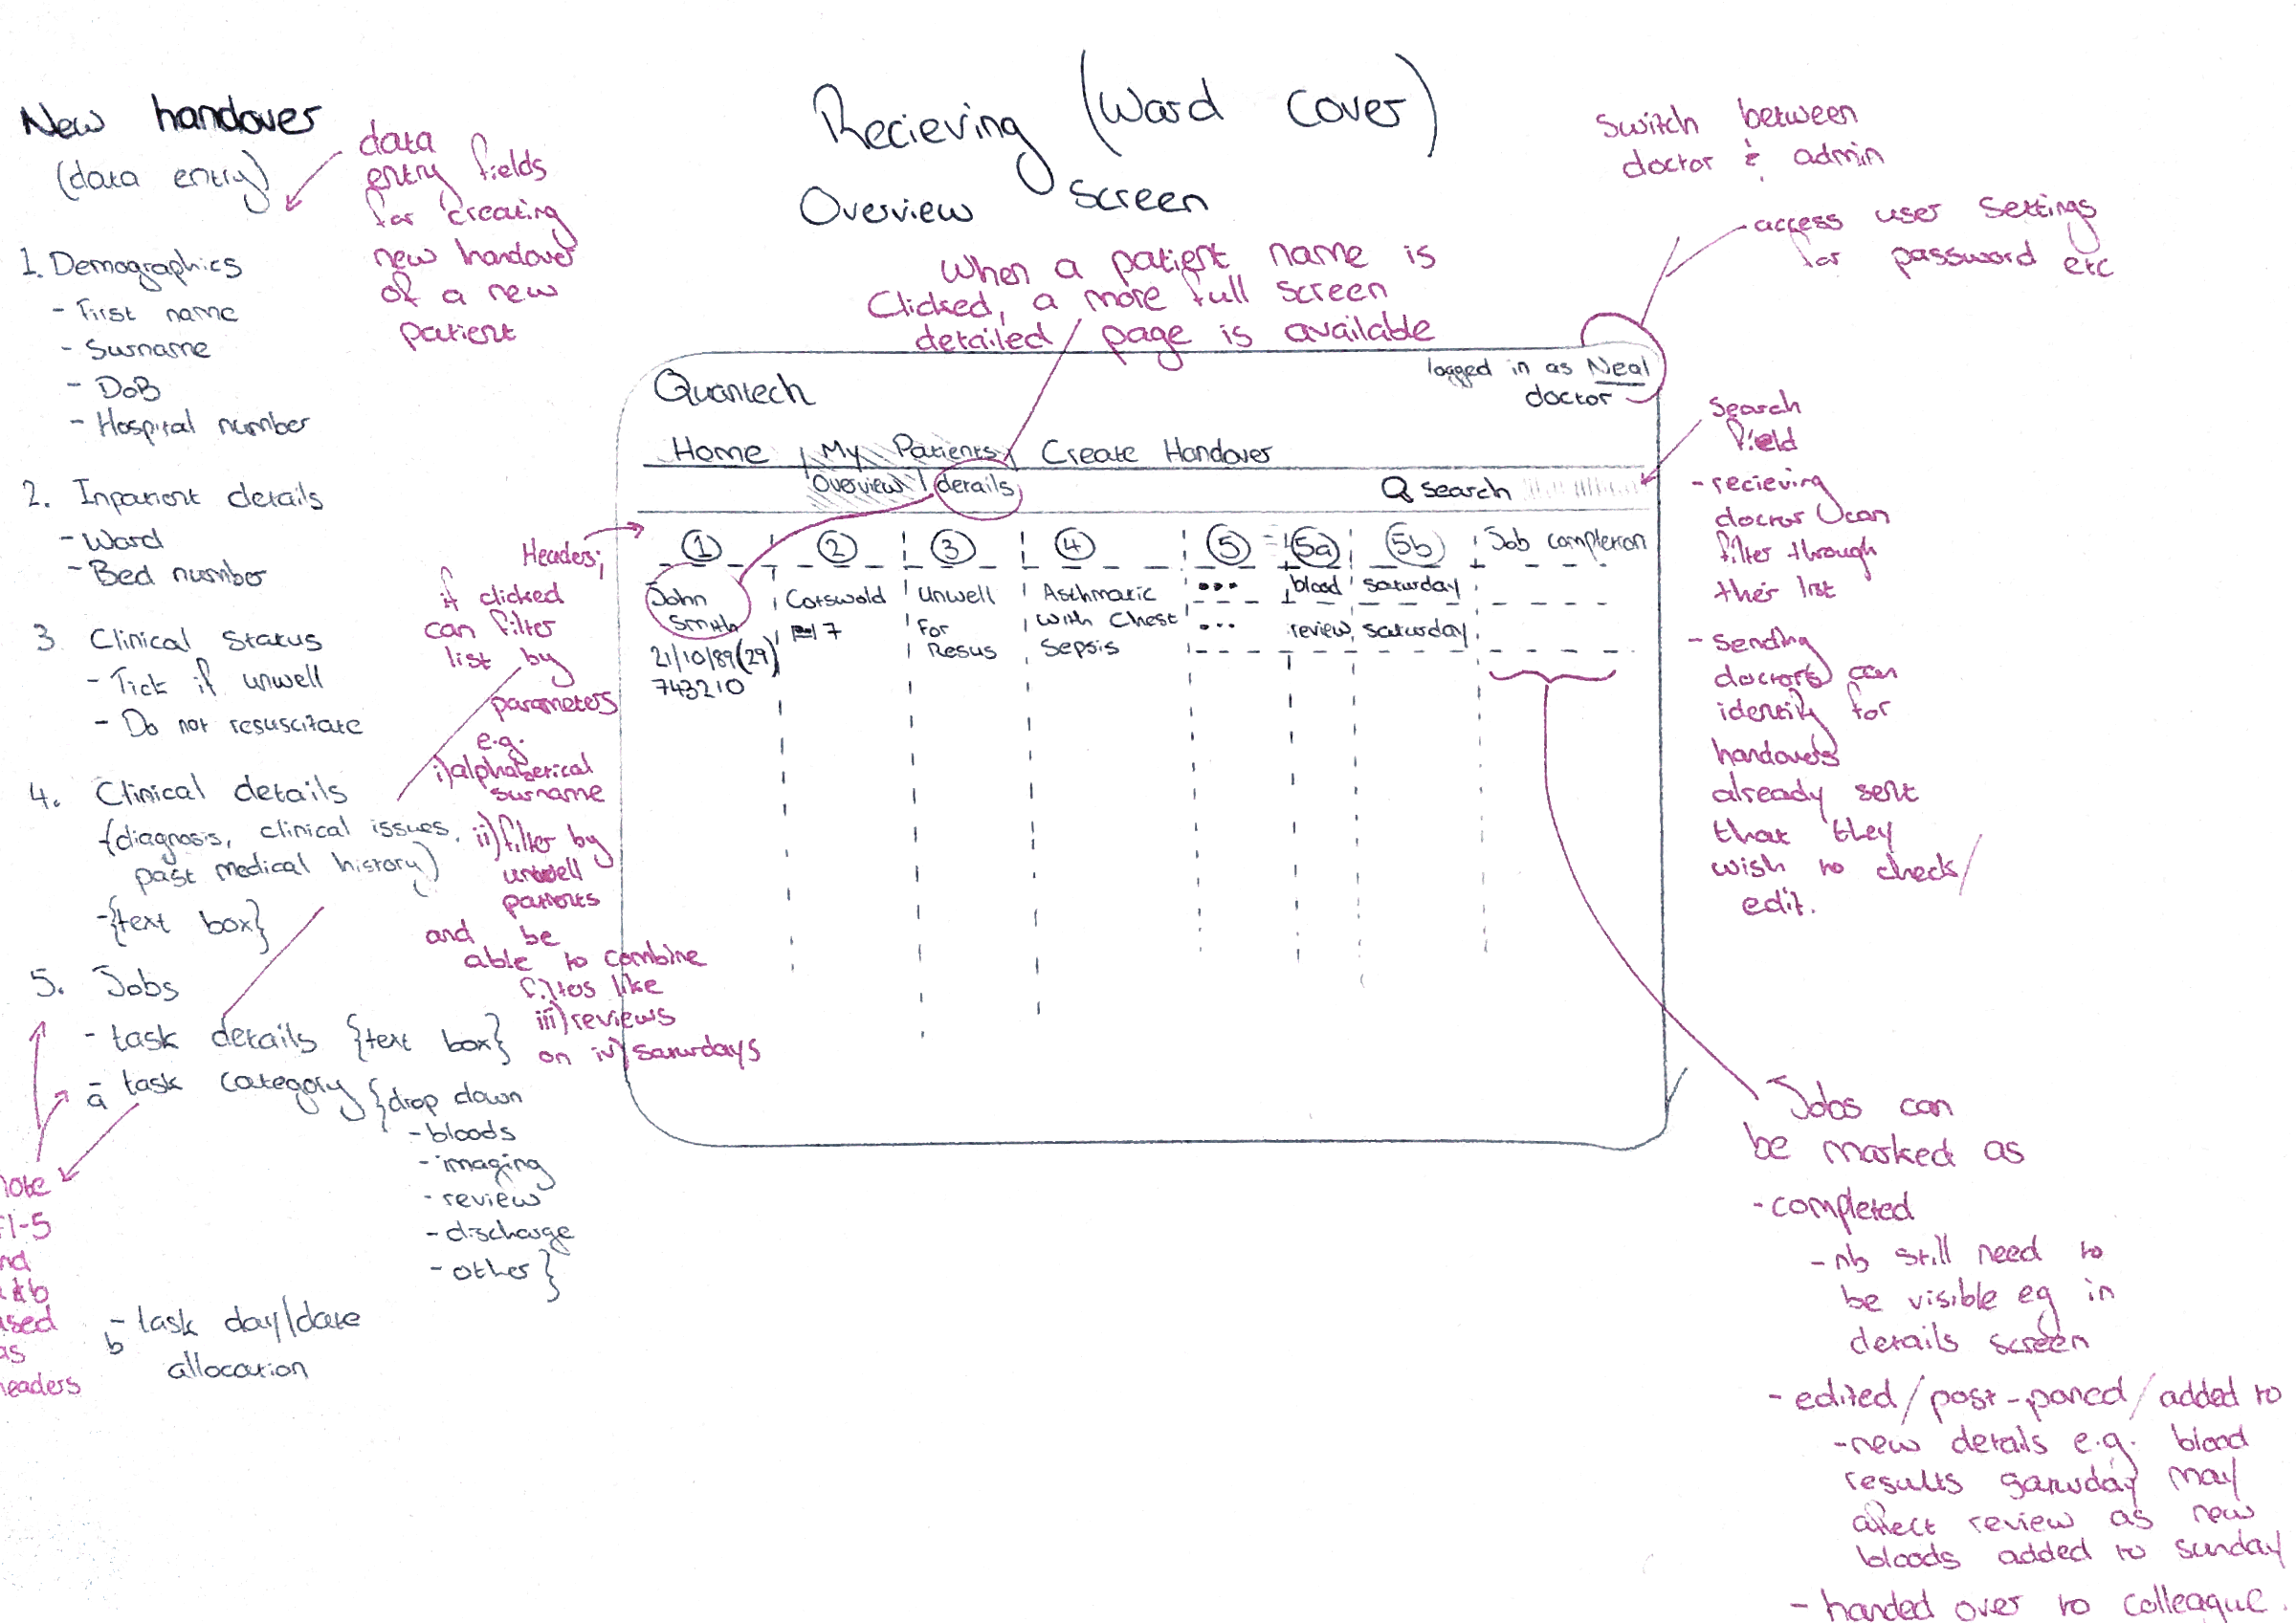 New handover
(data entry)
data
entry fields
for creating
new handover
of a new
patient
1. Demographics
- First name
- Surname
- DoB
- Hospital number
2. Inpatient details
- Ward
- Bed number
3 Clinical Status
- Tick if unwell
- Do not resuscitate
4. Clinical details
- (diagnosis, clinical issues,
past medical history)
- {text box}
5. Jobs
- task details {text box}
a - task category {drop down
- bloods
- imaging
- review
- discharge
- other}
b - task day/date
allocation
note
1-5
nd
a+b
used
as
headers
Recieving (Ward Cover)
Overview Screen
When a patient name is
Clicked, a more full screen
detailed page is available
Switch between
doctor & admin
access user settings
for password etc
Quantech
logged in as Neal
doctor
Home | My Patients | Create Handover
Overview | details
Q search
1 2 3 4 5 = 5a 5b Job completion
John
Smith
21/10/89(29)
743210
Cotswold
7
Unwell
For
Resus
Asthmatic
with Chest
Sepsis
... blood saturday
... review saturday
Headers;
if clicked
can filter
list by
parameters
e.g.
i) alphabetical
surname
ii) filter by
unwell
patients
and be
able to combine
filters like
iii) reviews
on iv) saturdays
Search
field
- recieving
doctor can
filter through
their list
- sending
doctors can
identify for
handovers
already sent
that they
wish to check/
edit.
Jobs can
be marked as
- completed
- nb still need to
be visible eg in
details screen
- edited/post-poned/added to
- new details e.g. blood
results saturday may
affect review as new
bloods added to sunday
- handed over to colleague.